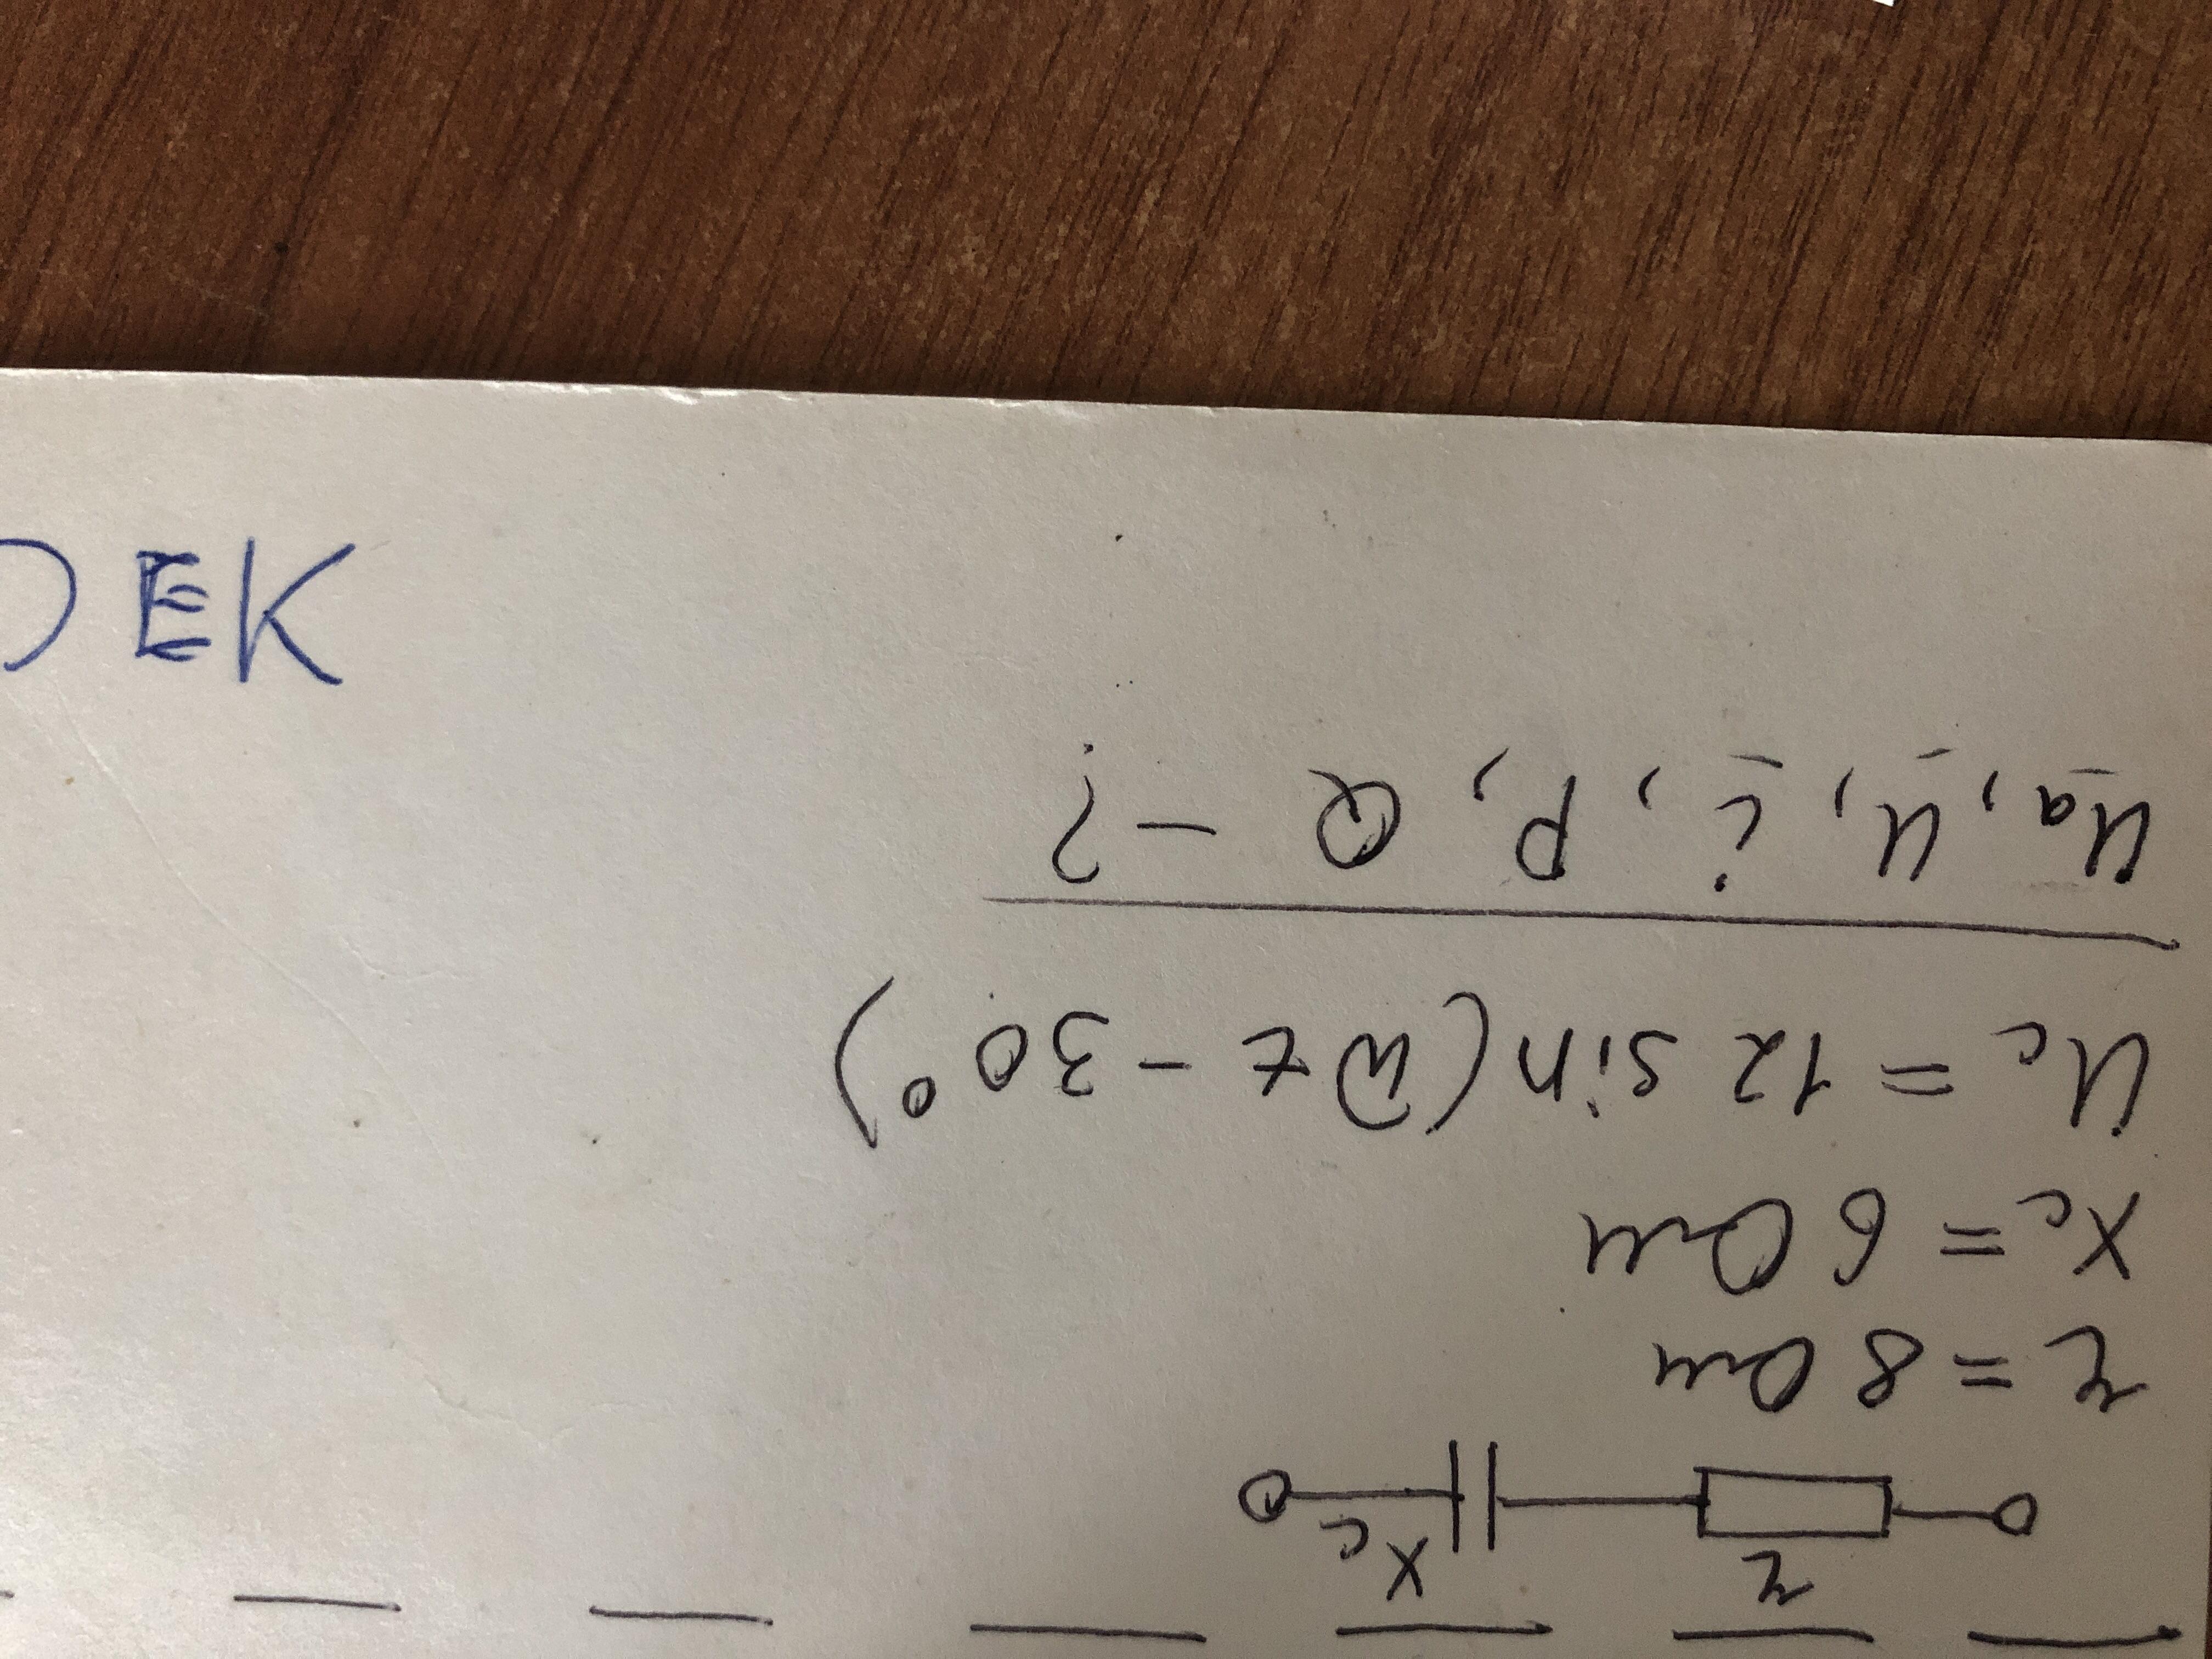 r xc
r = 8 Ом
xc = 6 Ом
uc = 12 sin(ωt - 30°)
ua, u, i, P, Q - ?
DEK